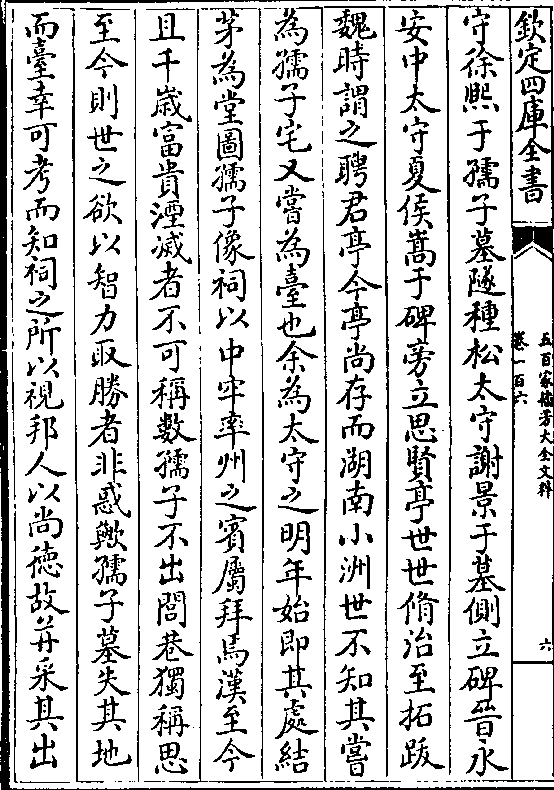 欽定四庫全書
五百家播芳大全文粹
卷一百六
六
守徐熈于孺子墓隧種松太守謝景于墓側立碑晉永
安中太守夏侯嵩于碑旁立思賢亭世世脩治至拓跋
魏時謂之聘君亭今亭尚存而湖南小洲世不知其嘗
為孺子宅又嘗為臺也余為太守之明年始即其處結
茅為堂圖孺子像祠以中牢率州之賓屬拜焉漢至今
且千歳富貴湮滅者不可稱數孺子不出閭巷獨稱思
至今則世之欲以智力取勝者非惑歟孺子墓失其地
而臺幸可考而知祠之所以視邦人以尚徳故并采其出